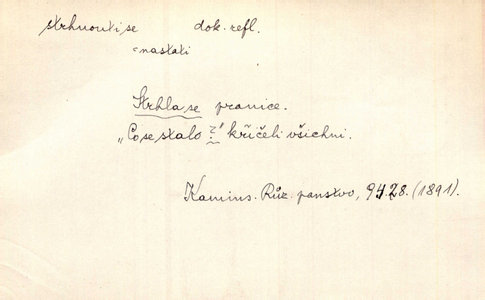 strhnouti se dok. refl.
= nastati
Strhla se pranice.
„Co se stalo?" křičeli všichni.
Kamins. Růz. panstvo, 94.28. (1891).